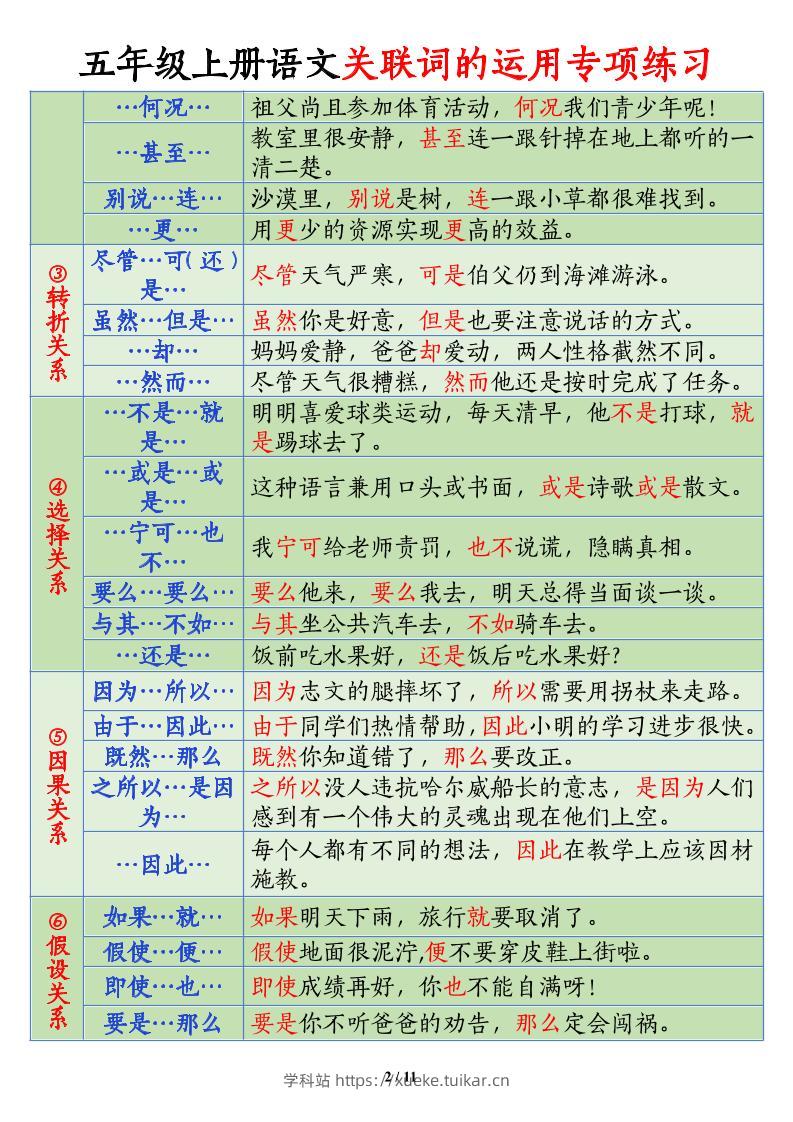 五年级上册语文关联词的运用专项练习
…何况… 祖父尚且参加体育活动，何况我们青少年呢！
…甚至… 教室里很安静，甚至连一跟针掉在地上都听的一
清二楚。
别说…连… 沙漠里，别说是树，连一跟小草都很难找到。
…更… 用更少的资源实现更高的效益。
③转折关系
尽管…可（还）
是… 尽管天气严寒，可是伯父仍到海滩游泳。
虽然…但是… 虽然你是好意，但是也要注意说话的方式。
…却… 妈妈爱静，爸爸却爱动，两人性格截然不同。
…然而… 尽管天气很糟糕，然而他还是按时完成了任务。
④选择关系
…不是…就
是… 明明喜爱球类运动，每天清早，他不是打球，就
是踢球去了。
…或是…或
是… 这种语言兼用口头或书面，或是诗歌或是散文。
…宁可…也
不… 我宁可给老师责罚，也不说谎，隐瞒真相。
要么…要么… 要么他来，要么我去，明天总得当面谈一谈。
与其…不如… 与其坐公共汽车去，不如骑车去。
…还是… 饭前吃水果好，还是饭后吃水果好?
⑤因果关系
因为…所以… 因为志文的腿摔坏了，所以需要用拐杖来走路。
由于…因此… 由于同学们热情帮助,因此小明的学习进步很快。
既然…那么 既然你知道错了，那么要改正。
之所以…是因
为… 之所以没人违抗哈尔威船长的意志，是因为人们
感到有一个伟大的灵魂出现在他们上空。
…因此… 每个人都有不同的想法，因此在教学上应该因材
施教。
⑥假设关系
如果…就… 如果明天下雨，旅行就要取消了。
假使…便… 假使地面很泥泞,便不要穿皮鞋上街啦。
即使…也… 即使成绩再好，你也不能自满呀！
要是…那么 要是你不听爸爸的劝告，那么定会闯祸。
2 / 11
学科站 https://xueke.tuikar.cn